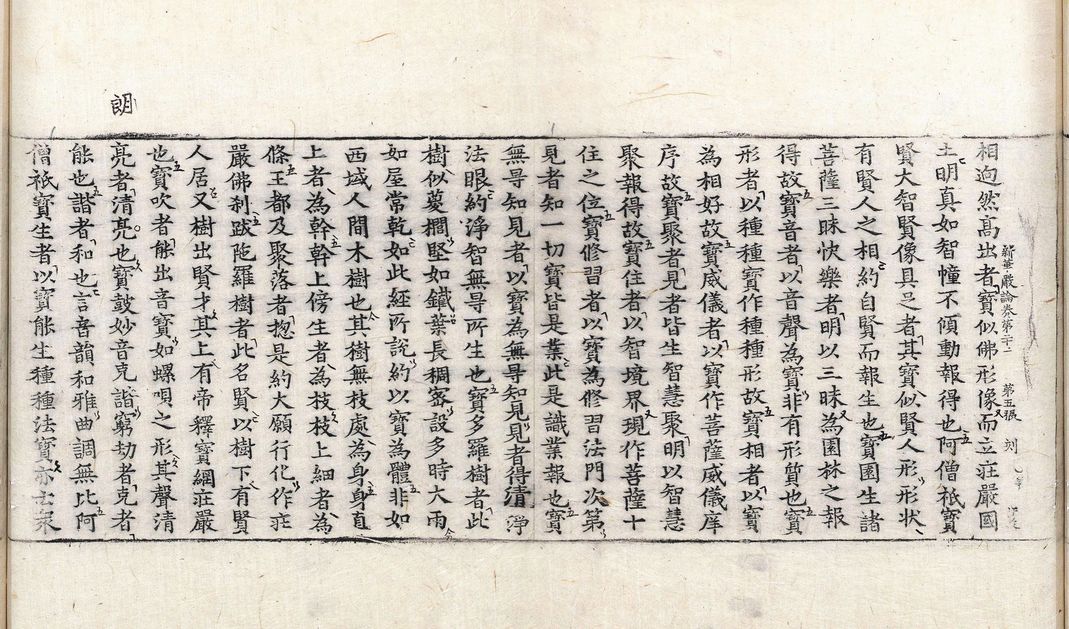 新華嚴論卷第三十二 第五張 刻
相逈然高出者寶似佛形像而立莊嚴國
土明真如智幢不傾動報得也阿僧祇寶
賢大智賢像具足者其寶似賢人形形狀
有賢人之相約自賢而報生也寶園生諸
菩薩三昧快樂者明以三昧為園林之報
得故寶音者以音聲為寶非有形質也寶
形者以種種寶作種種形故寶相者以寶
為相好故寶威儀者以寶作菩薩威儀庠
序故寶聚者見者皆生智慧聚明以智慧
聚報得故寶住者以智境界現作菩薩十
住之位寶修習者以寶為修習法門次第
見者知一切寶皆是業此是識業報也寶
無㝵知見者以寶為無㝵知見見者得清淨
法眼約淨智無㝵所生也寶多羅樹者此
樹似蔓櫚堅如鐵葉長稠密設多時大雨
如屋常乾如此經所說約以寶為體非如
西域人間木樹也其樹無枝處為身身直
上者為幹幹上傍生者為枝枝上細者為
條王都及聚落者揔是約大願行化作莊
嚴佛刹跋陁羅樹者此名賢以樹下有賢
人居又樹出賢才其上有帝釋寶網莊嚴
也寶吹者能出音寶如螺唄之形其聲清
亮者清亮也寶鼓妙音克諧窮劫者克者
能也諧者和也言音韻和雅曲調無比阿
僧祇寶生者以寶能生種種法寶亦云眾
朗